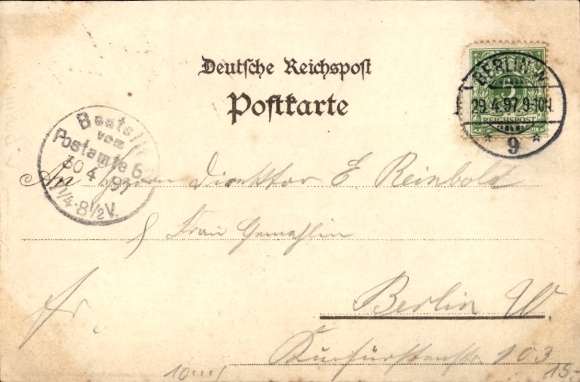 Deutsche Reichspost
Postkarte
BERLIN W.
29.4.97.9-10N.
9
5
REICHSPOST
Bestellt
vom
Postamte 6
30 4 97
1/4-8½V.
An Herrn Direktor E Reinbold
& Frau Gemahlin
Berlin W.
fr.
Kurfürstenstr 103
15.-